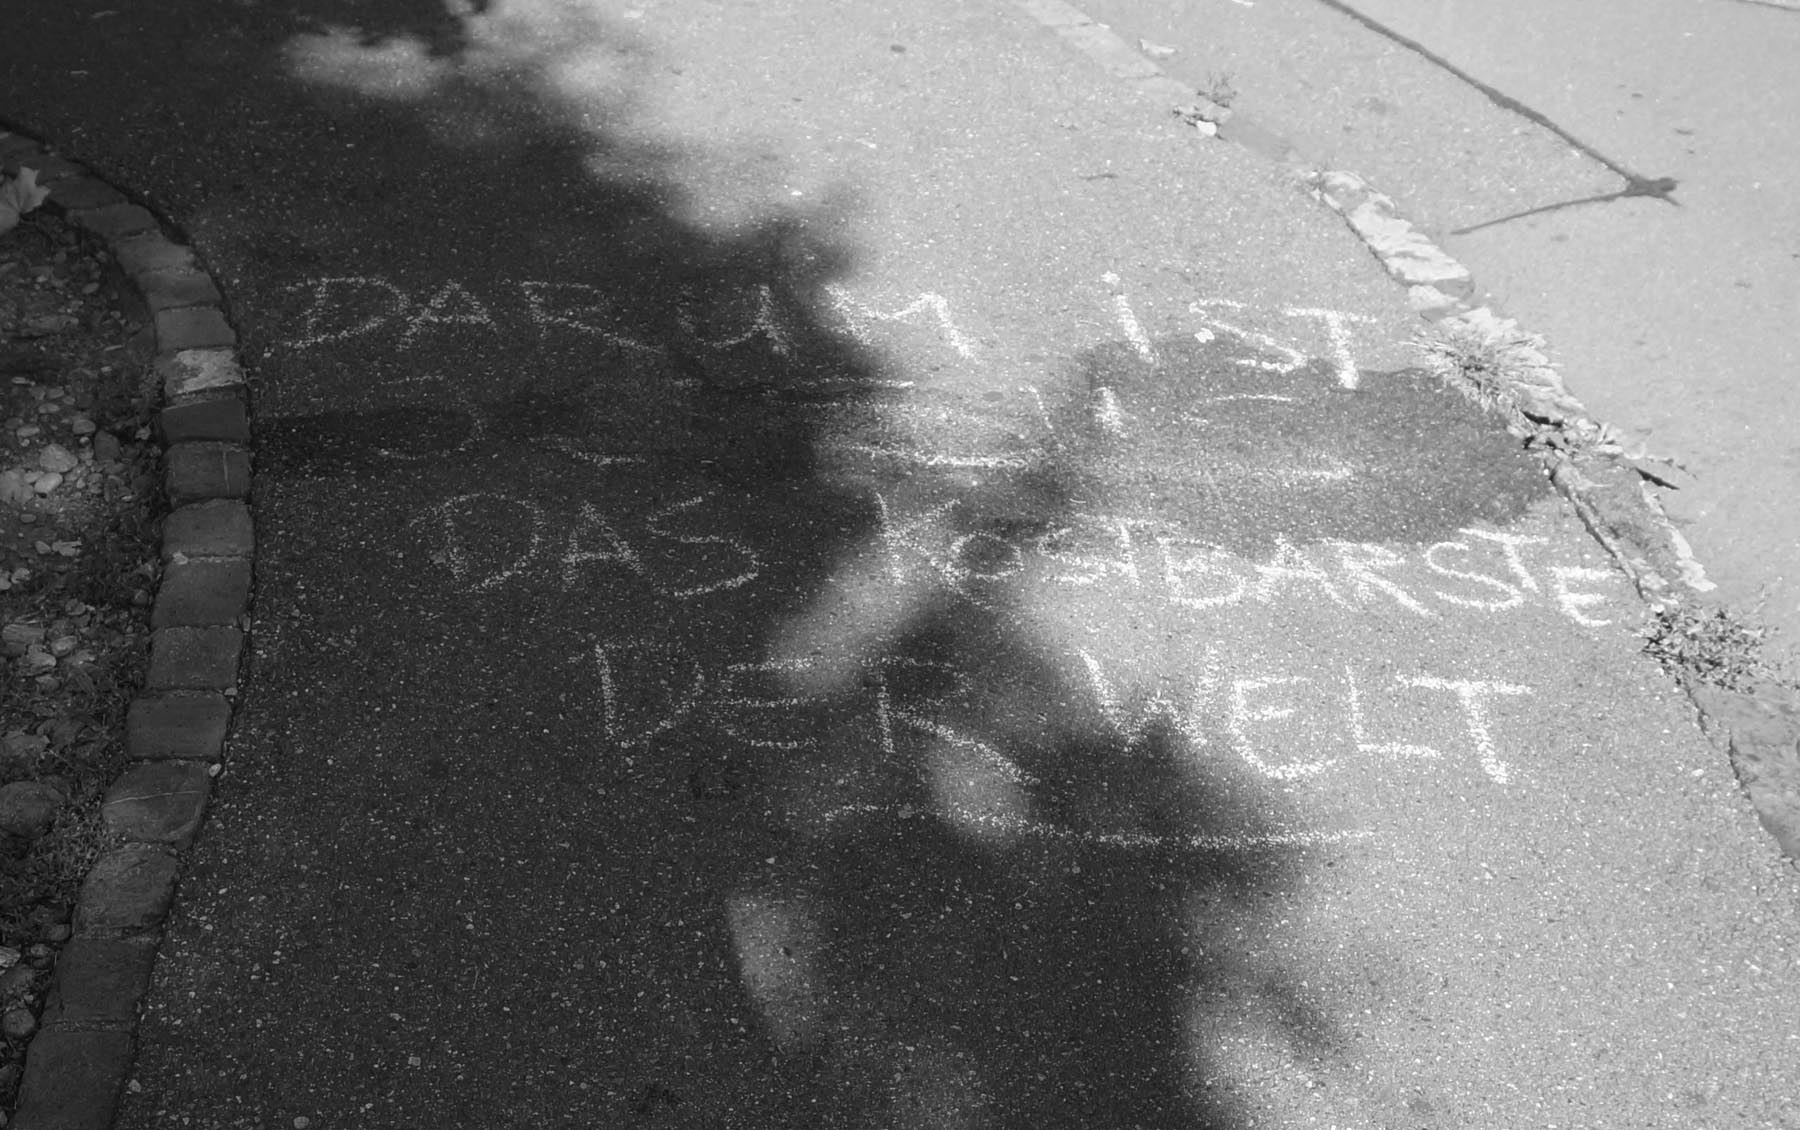 DARUM iST
DAS KOSTBARSTE
DER WELT